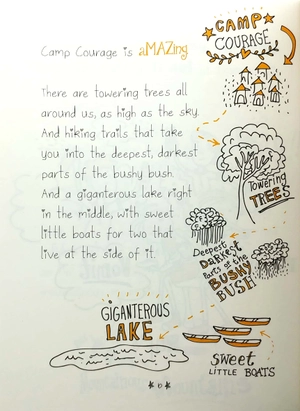 CAMP
COURAGE
Camp Courage is aMAZing.
There are towering trees all
around us, as high as the sky.
And hiking trails that take
you into the deepest, darkest
parts of the bushy bush.
And a giganterous lake right
in the middle, with sweet
little boats for two that
live at the side of it.
Towering
TREES
Deepest
DARKEST
Parts of the
BUSHY
BUSH
GIGANTEROUS
LAKE
SWEET
LITTLE BOATS
6